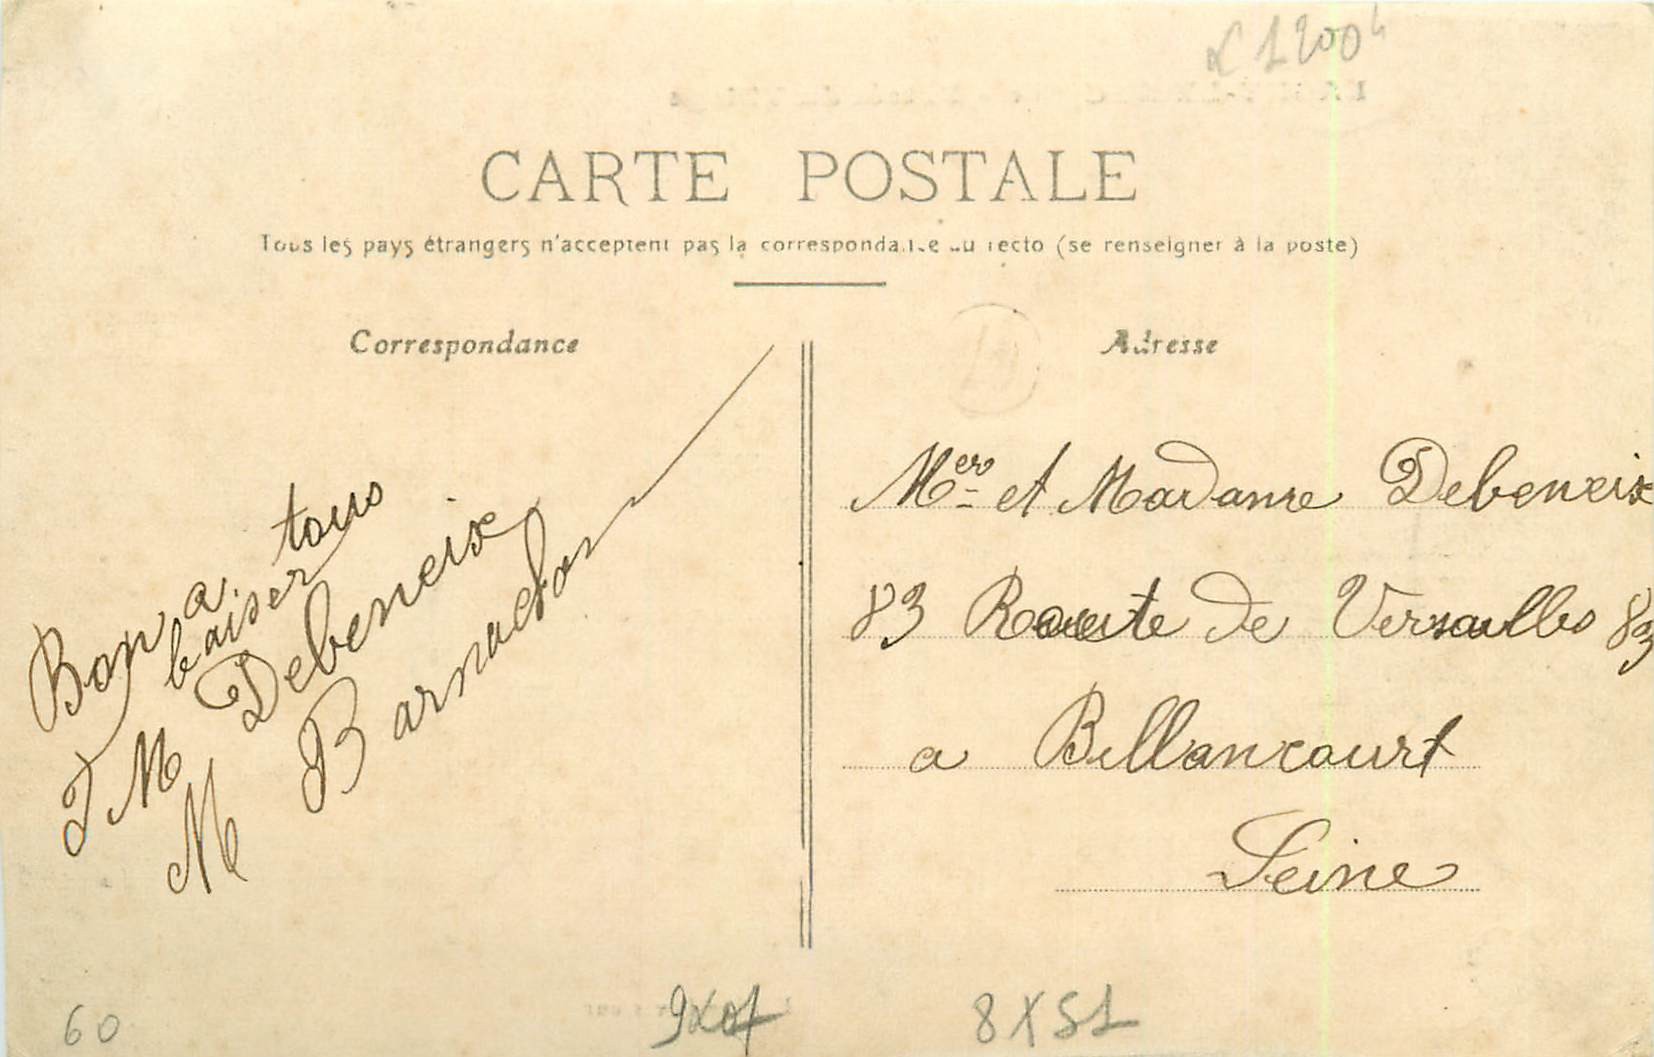 CARTE POSTALE
Tous les pays étrangers n'acceptent pas la correspondance au recto (se renseigner à la poste)
Correspondance
Adresse
Bon a tous
baiser
J M Debeneix
M Barnacton
Mer et Madame Debeneix
83 Route de Versailles 83
a Billancourt
Seine
60
8X51